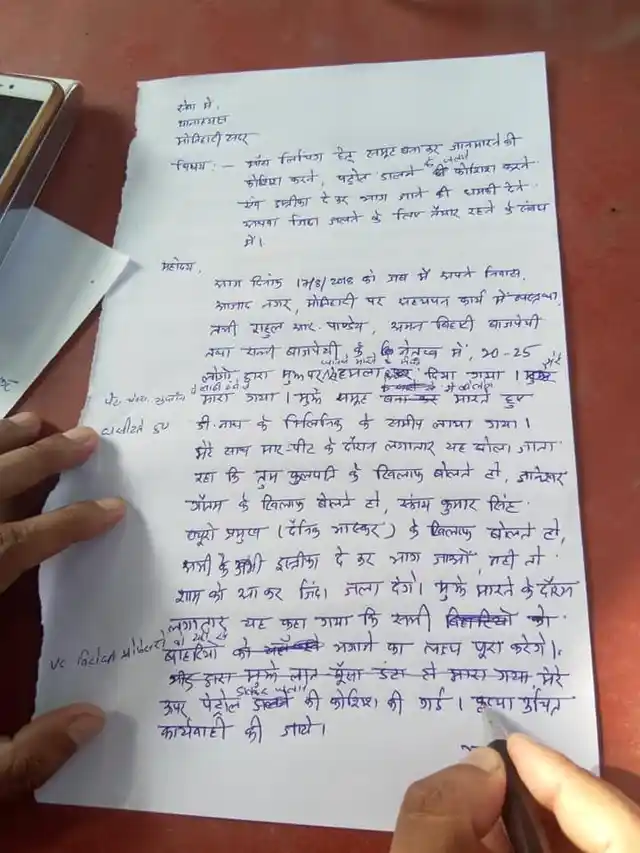 सेवा में,
थानाध्यक्ष
मोतिहारी सदर
विषय :- मॉब लिंचिंग हेतु समूह बना कर जानमारने की
कोशिश करने, पेट्रोल डालने के जलाने की कोशिश करने
एवं इस्तीफा दे कर भाग जाने की धमकी देने
अथवा जिंदा जलने के लिए तैयार रहने के संबंध
में।
महोदय,
आज दिनांक 17/8/2018 को जब मैं अपने निवास,
आजाद नगर, मोतिहारी पर अध्ययन कार्य में
तभी राहुल आर. पाण्डेय, अमन बिहारी बाजपेयी
तथा सन्नी बाजपेयी के नेतृत्व में, 20-25
लोगों द्वारा मुझ पर जानसे मारने के हमला दिया गया। मुझे
मारा गया। मुझे समूह बना कर मारते हुए
घसीटते हुए डी. नाथ के क्लिनिक के समीप लाया गया।
मेरे साथ मार-पीट के दौरान लगातार यह बोला जाता
रहा कि तुम कुलपति के खिलाफ बोलते हो, ज्ञानेश्वर
गौतम के खिलाफ बोलते हो, संजय कुमार सिंह
ब्यूरो प्रमुख (दैनिक भास्कर) के खिलाफ बोलते हो,
अभी के अभी इस्तीफा दे कर भाग जाओ, नहीं तो
शाम को आ कर जिंदा जला देंगे। मुझे मारने के दौरान
लगातार यह कहा गया कि सभी बिहारियों को
बाहरियों को यहाँ से भगाने का लक्ष्य पूरा करेंगे।
भीड़ द्वारा मुझे लात घूँसा डंडा से मारा गया मेरे
ऊपर पेट्रोल डालने की कोशिश की गई। कृपया उचित
कार्यवाही की जाये।